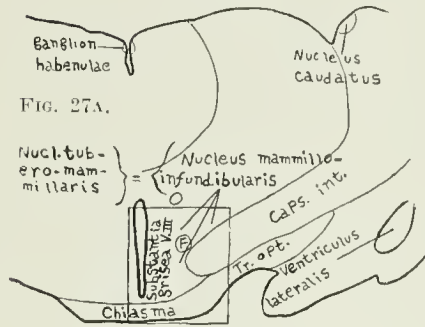 Ganglion
habenulae
Nucleus
caudatus
FIG. 27A.
Nucl.tub-
ero-mam-
millaris
=
Nucleus mammillo-
infundibularis
Substantia
grisea V.III
F
Caps. int.
Tr. opt.
Ventriculus
lateralis
Chiasma